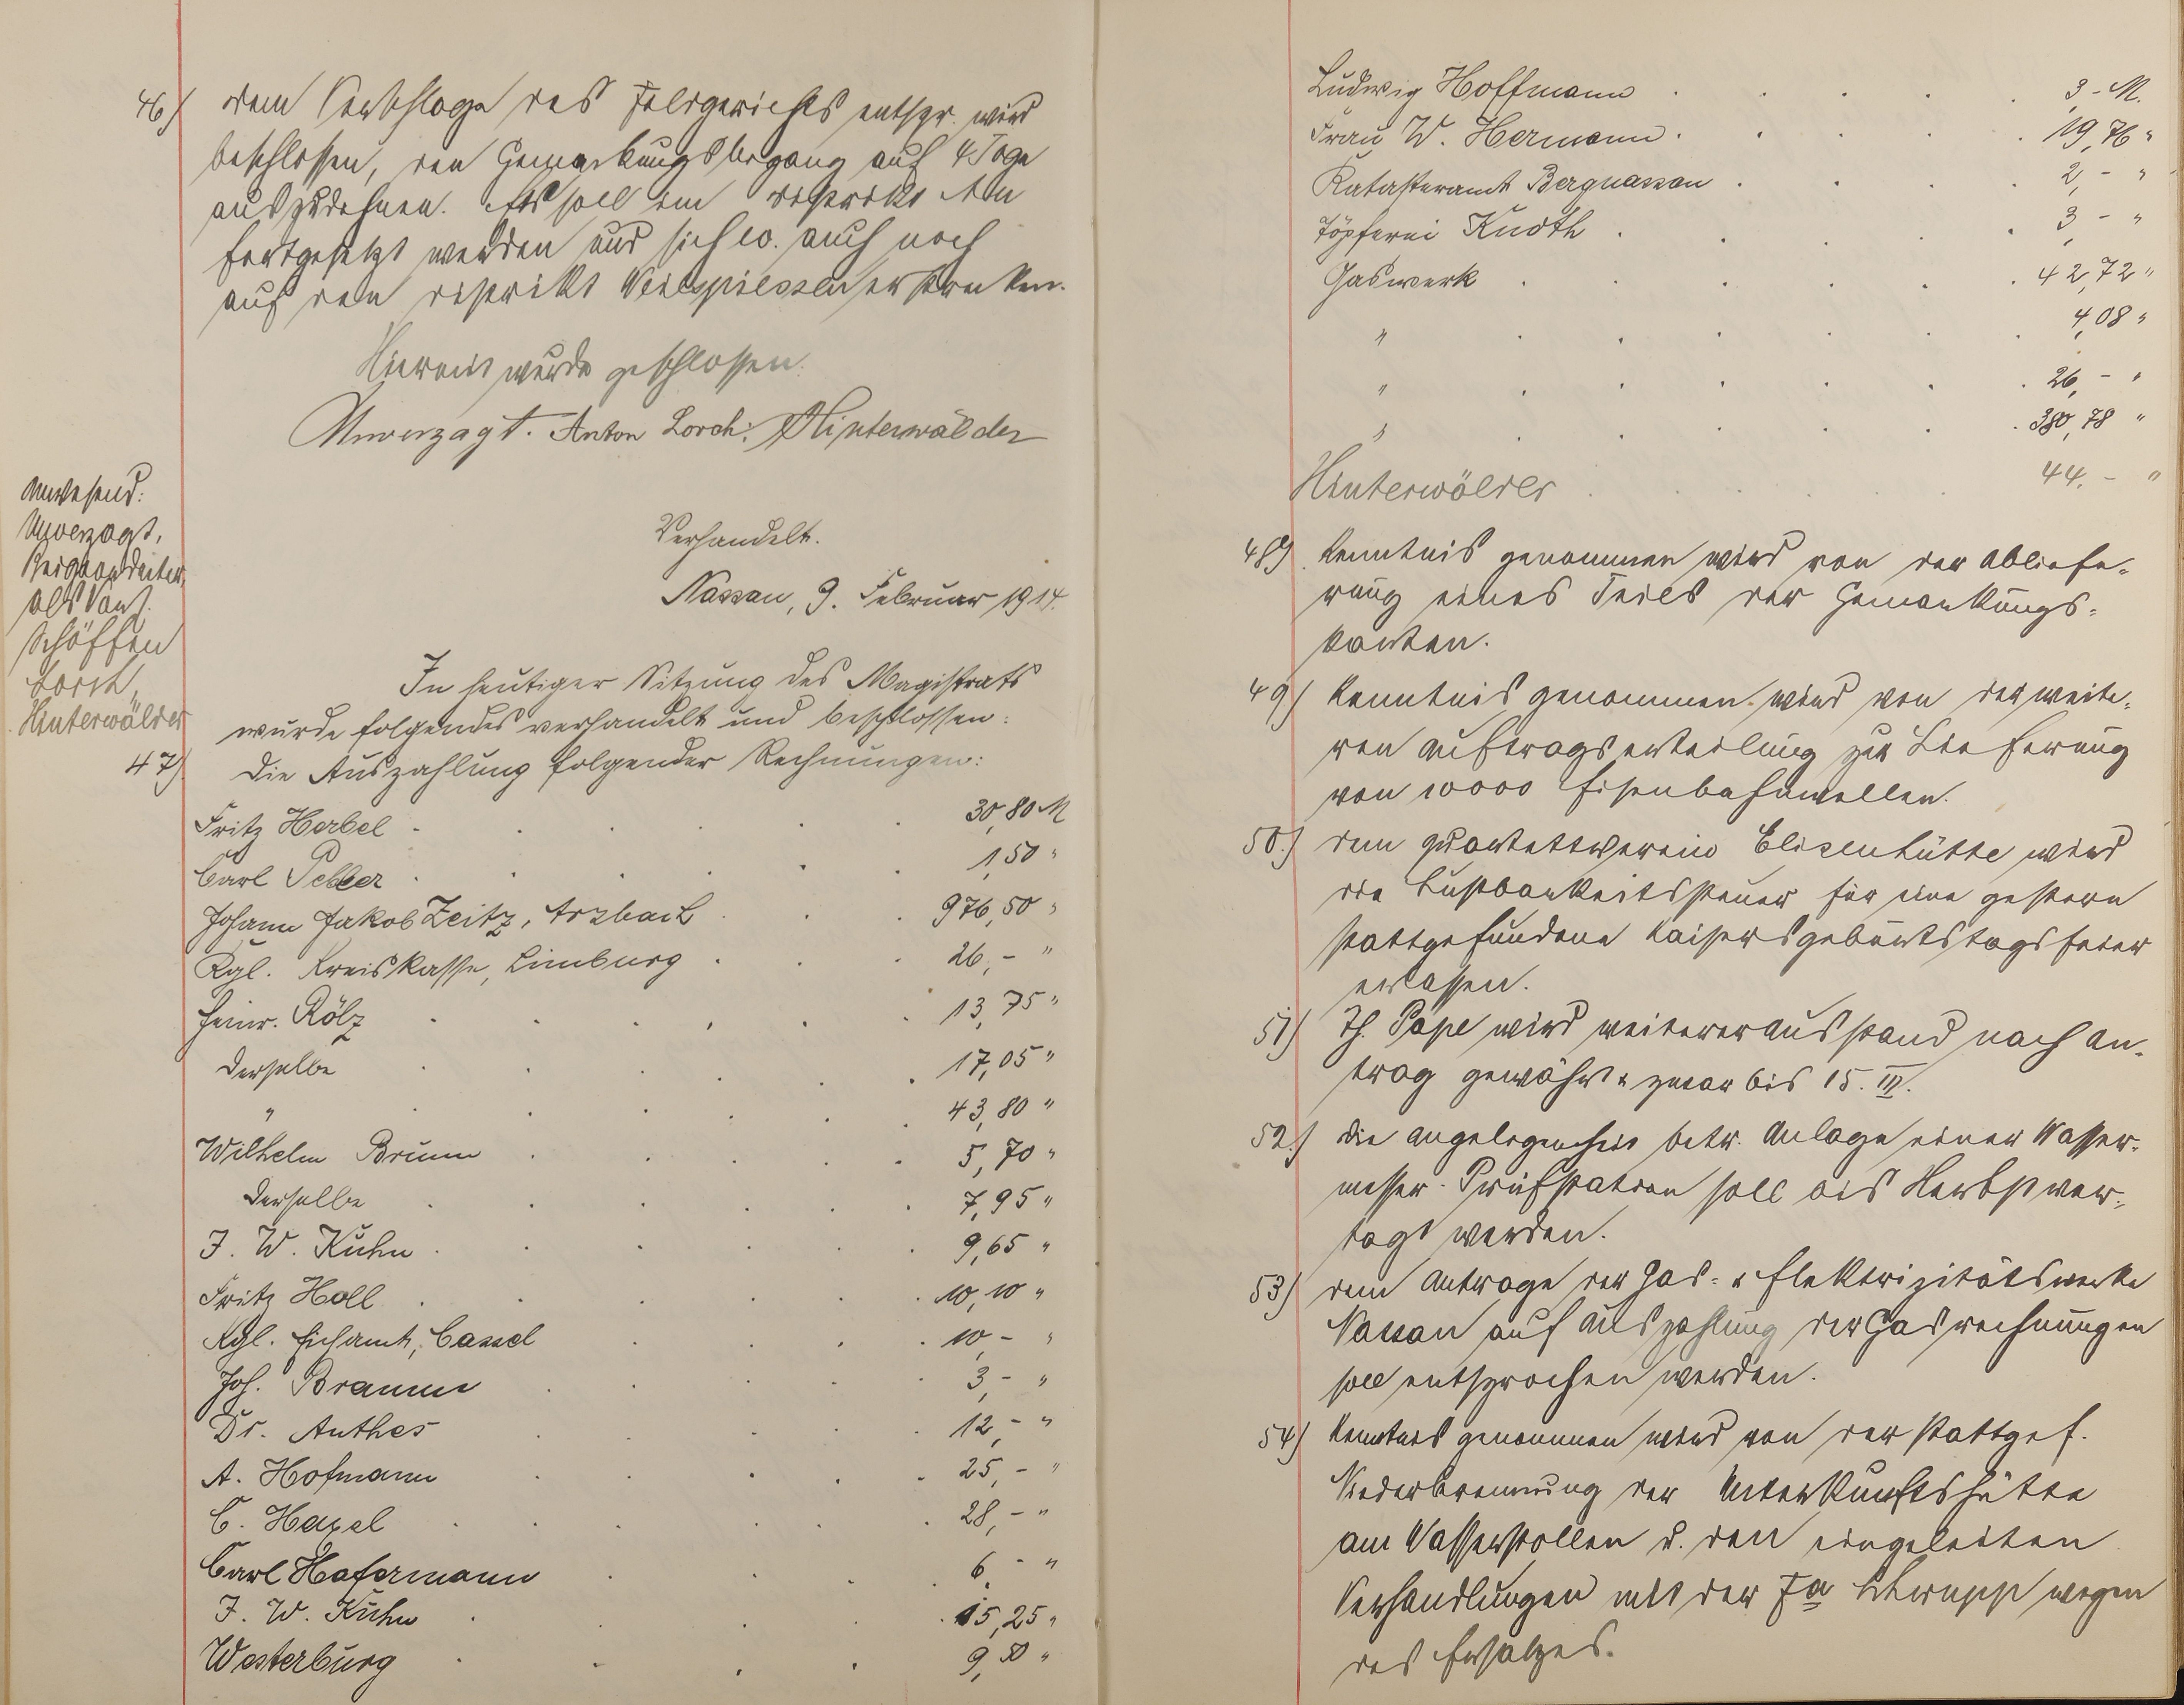 46) dem Vorschlage des Feldgerichts entspr. wird
beschlossen, den Gemarkungsbegang auf 4 Tage
auszudehnen. Es soll im Distrikt
fortgesetzt werden und sich ev. auch noch
auf den Distrikt erstrecken.
Hiermit wurde geschlossen.
Unverzagt. Anton Lorch. Hinterwälder
Anwesend:
Unverzagt,
als Vors.
Schöffen
Lorch,
Hinterwälder
Verhandelt.
Nassau, 9. Februar 1914.
In heutiger Sitzung des Magistrats
wurde folgendes verhandelt und beschlossen:
47) Die Auszahlung folgender Rechnungen:
Fritz Herbel . . . . . 30,80 M
Carl Peller . . . . . 1,50 "
Johann Jakob Zeitz, Arzbach . . . 976,50 "
Kgl. Kreiskasse, Limburg . . . 26,- "
Heinr. Rölz . . . . . . 13,75 "
Derselbe . . . . . . 17,05 "
" . . . . . . 43,80 "
Wilhelm Bruum . . . . . 5,70 "
Derselbe . . . . . . 7,95 "
J. W. Kuhn . . . . . . 9,65 "
Fritz Holl . . . . . . 10,10 "
Kgl. Eichamt, Cassel . . . . 10,- "
Joh. Bramm . . . . . 3,- "
Dr. Anthes . . . . . 12,- "
A. Hofmann . . . . . 25,- "
C. Hagel . . . . . . 28,- "
Carl Hafermann . . . . 6,- "
J. W. Kuhn . . . . 15,25 "
Westerburg . . . . 9,50 "
Ludwig Hoffmann . . . . . 3,- M.
Frau W. Hermann . . . . . 19,76 "
Katasteramt Bergnassau . . . . 2,- "
Töpferei Knoth . . . . . 3,- "
Gaswerk . . . . . . 42,72 "
" . . . . . . 4,08 "
" . . . . . . 26,- "
" . . . . . . 380,78 "
Hinterwälder . . . . . 44,- "
48) Kenntnis genommen wird von der Abliefe-
rung eines Teiles der Gemarkungs-
karten.
49) Kenntnis genommen wird von der weite-
ren Auftragserteilung zur Lieferung
von 10000 Eisenbahnwellen.
50.) dem Quartettverein Elisenhütte wird
die Lustbarkeitssteuer für eine gestern
stattgefundene Kaisersgeburtstagsfeier
erlassen.
51) Th. Pape wird weiterer Ausstand nach An-
trag gewährt & zwar bis 15. III.
52.) Die Angelegenheit betr. Anlage einer Wasser-
messer-Prüfstation soll bis Herbst ver-
tagt werden.
53) dem Antrage der Gas- & Elektrizitätswerke
Nassau auf Auszahlung der Gasrechnungen
soll entsprochen werden.
54) Kenntnis genommen wird von der stattgef.
Niederbrennung der Unterkunftshütte
am Wasserstollen u. den eingeleiten
Verhandlungen mit der Fa wegen
des Ersatzes.